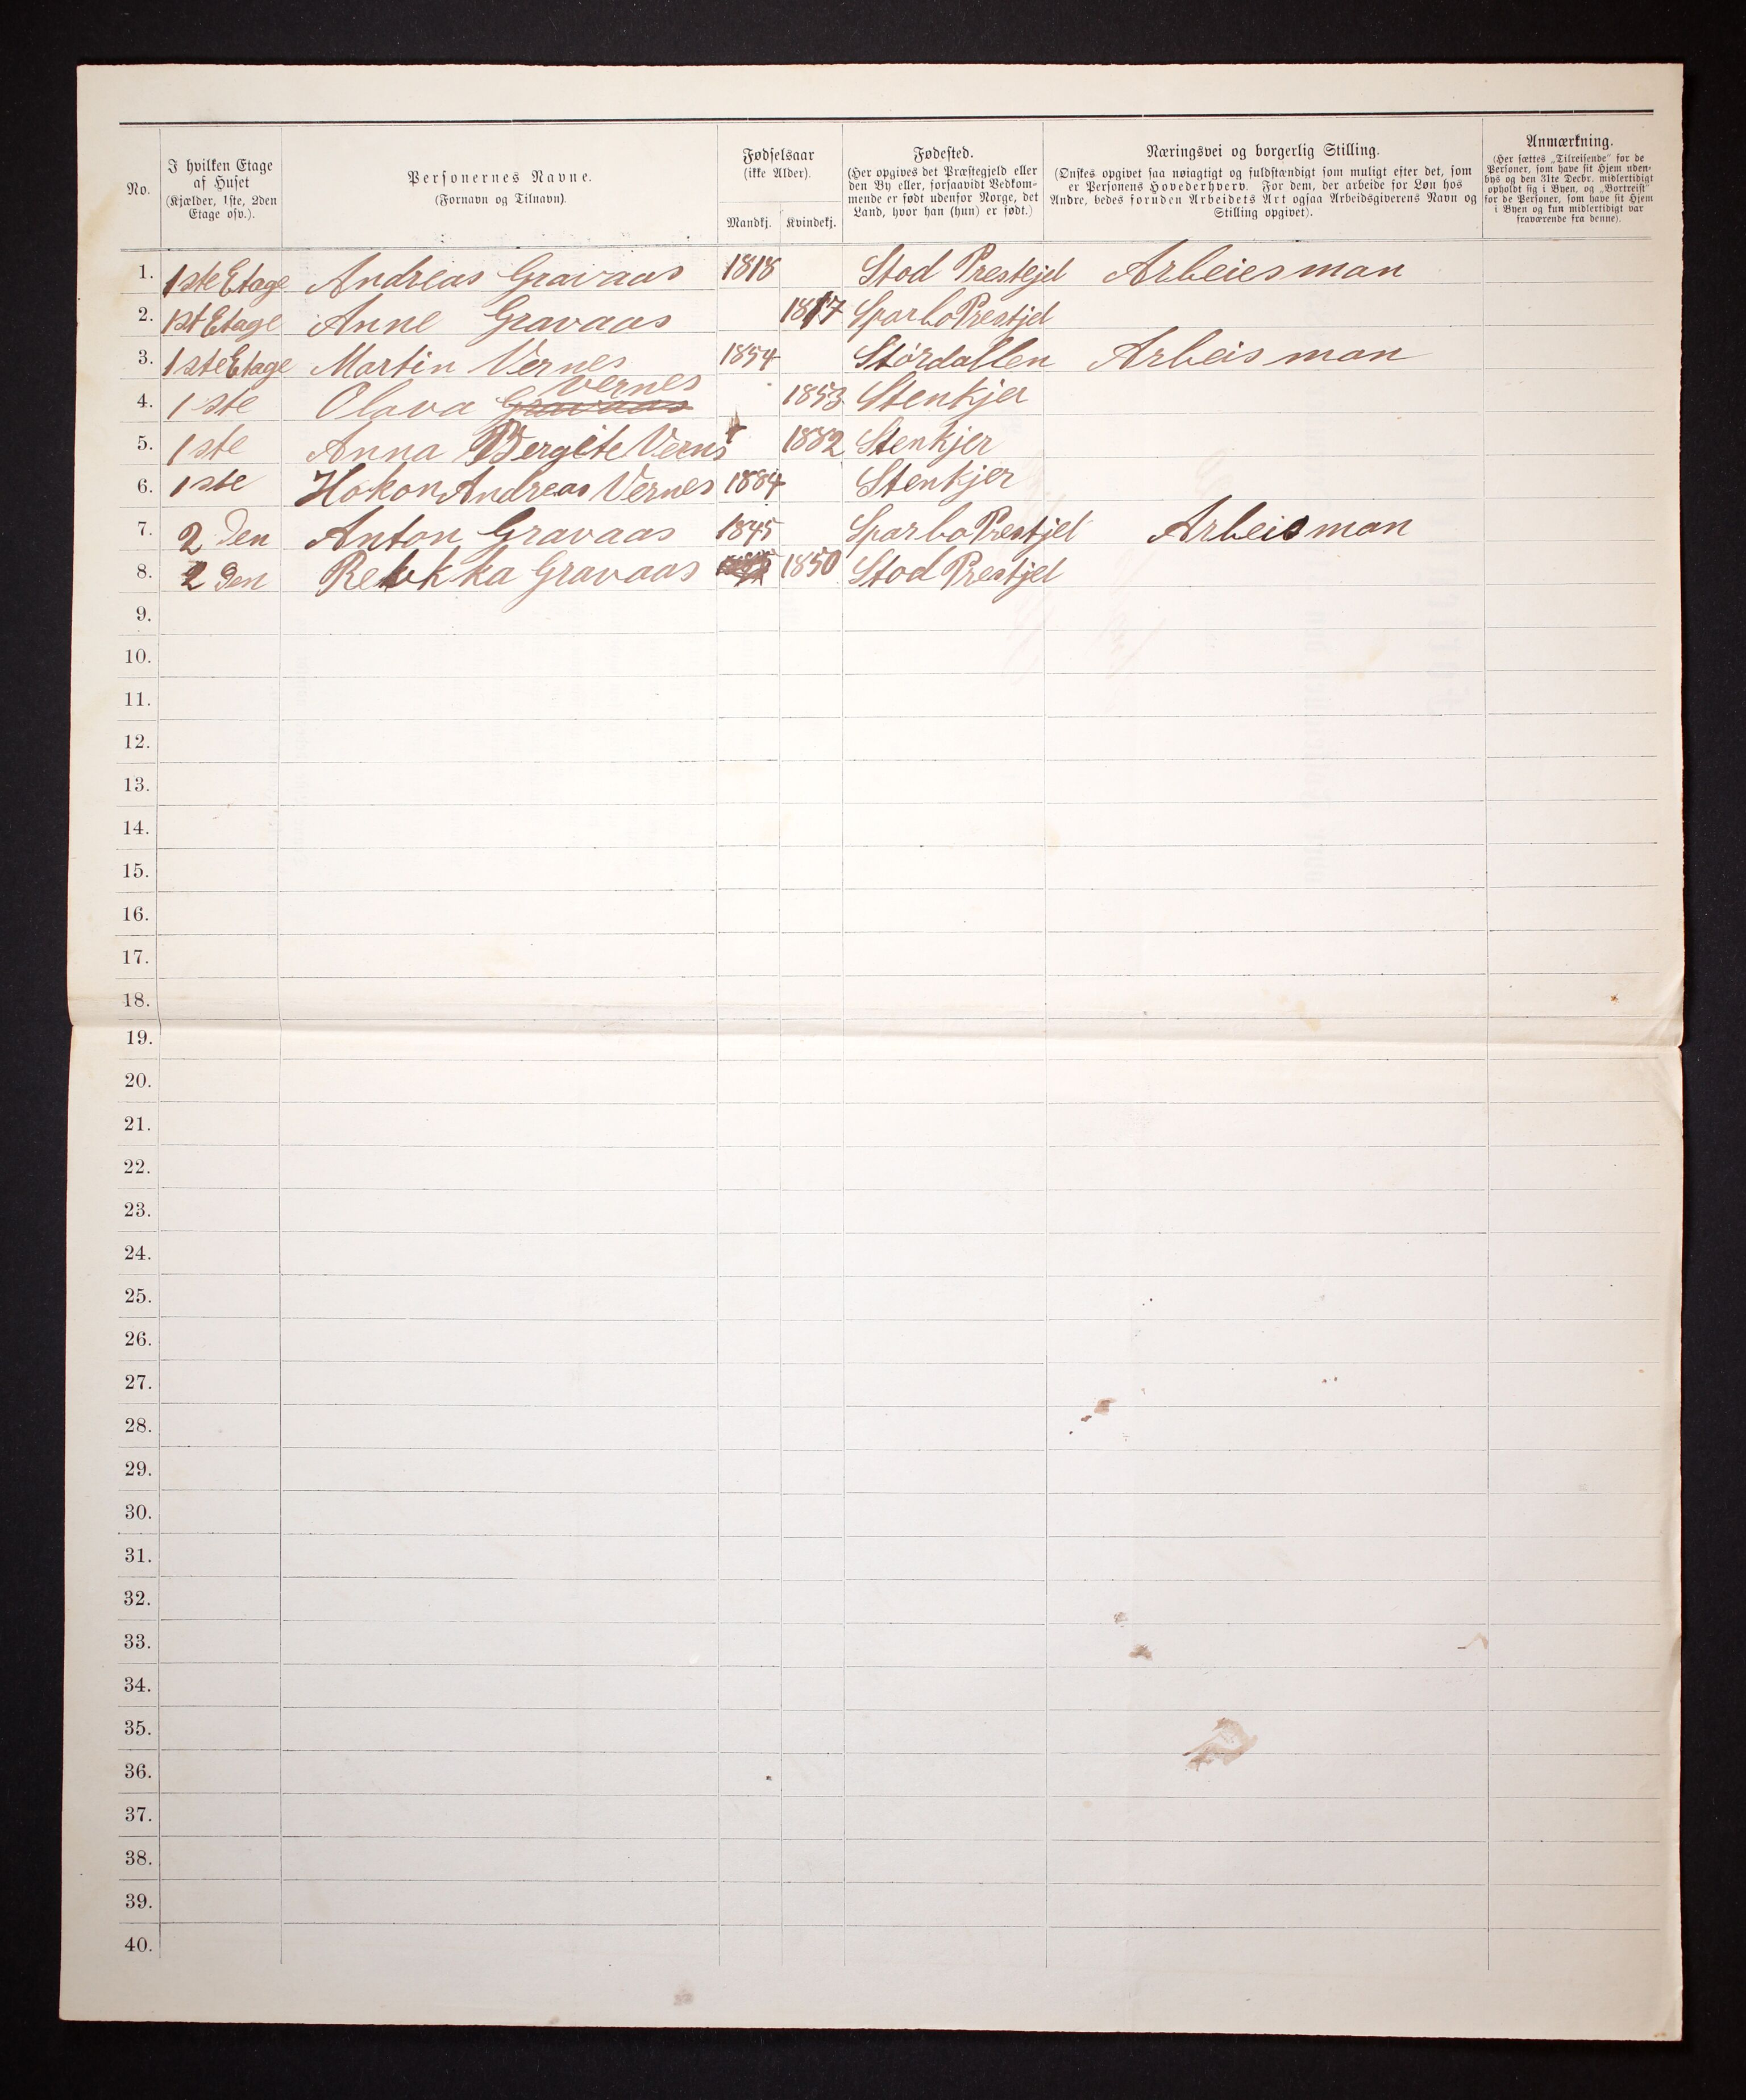 No.
I hvilken Etage
af Huset
(Kjælder, 1ste, 2den
Etage osv.).
Personernes Navne.
(Fornavn og Tilnavn).
Fødselsaar
(ikke Alder).
Mandkj. Kvindekj.
Fødested.
(Her opgives det Præstegjeld eller
den By eller, forsaavidt Vedkom-
mende er født udenfor Norge, det
Land, hvor han (hun) er født.)
Næringsvei og borgerlig Stilling.
(Ønskes opgivet saa nøiagtigt og fuldstændigt som muligt efter det, som
er Personens Hovederhverv. For dem, der arbeide for Løn hos
Andre, bedes foruden Arbeidets Art ogsaa Arbeidsgiverens Navn og
Stilling opgivet).
Anmærkning.
(Her sættes „Tilreisende" for de
Personer, som have sit Hjem uden-
bys og den 31te Decbr. midlertidigt
opholdt sig i Byen, og „Bortreist"
for de Personer, som have sit Hjem
i Byen og kun midlertidigt var
fraværende fra denne).
1. 1ste Etage Andreas Gravaas 1818 Stod Prestejel Arbeiesman
2. 1st Etage Anne Gravaas 1817 Sparbo Prestjel
3. 1ste Etage Martin Vernes 1854 Stórdallen Arbeisman
4. 1ste Olava Gravaas Vernes 1853 Stenkjer
5. 1ste Anna Bergite Verns 1882 Stenkjer
6. 1ste Hokon Andreas Vernes 1884 Stenkjer
7. 2den Anton Gravaas 1845 Sparbo Prestjel Arbeisman
8. 2den Rebekka Gravaas 1850 Stod Prestjel
9.
10.
11.
12.
13.
14.
15.
16.
17.
18.
19.
20.
21.
22.
23.
24.
25.
26.
27.
28.
29.
30.
31.
32.
33.
34.
35.
36.
37.
38.
39.
40.